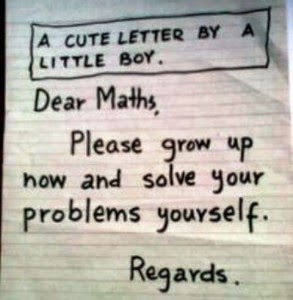 A CUTE LETTER BY A
LITTLE BOY.
Dear Maths,
Please grow up
now and solve your
problems yourself.
Regards.